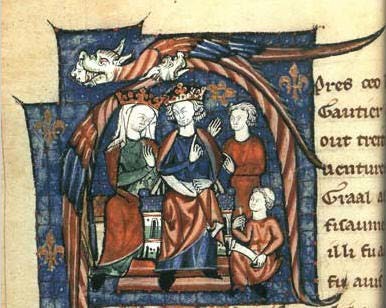 Pres ceo
Gautier
out tret
uenture
Graal
fisaume
il li fu
fu aui